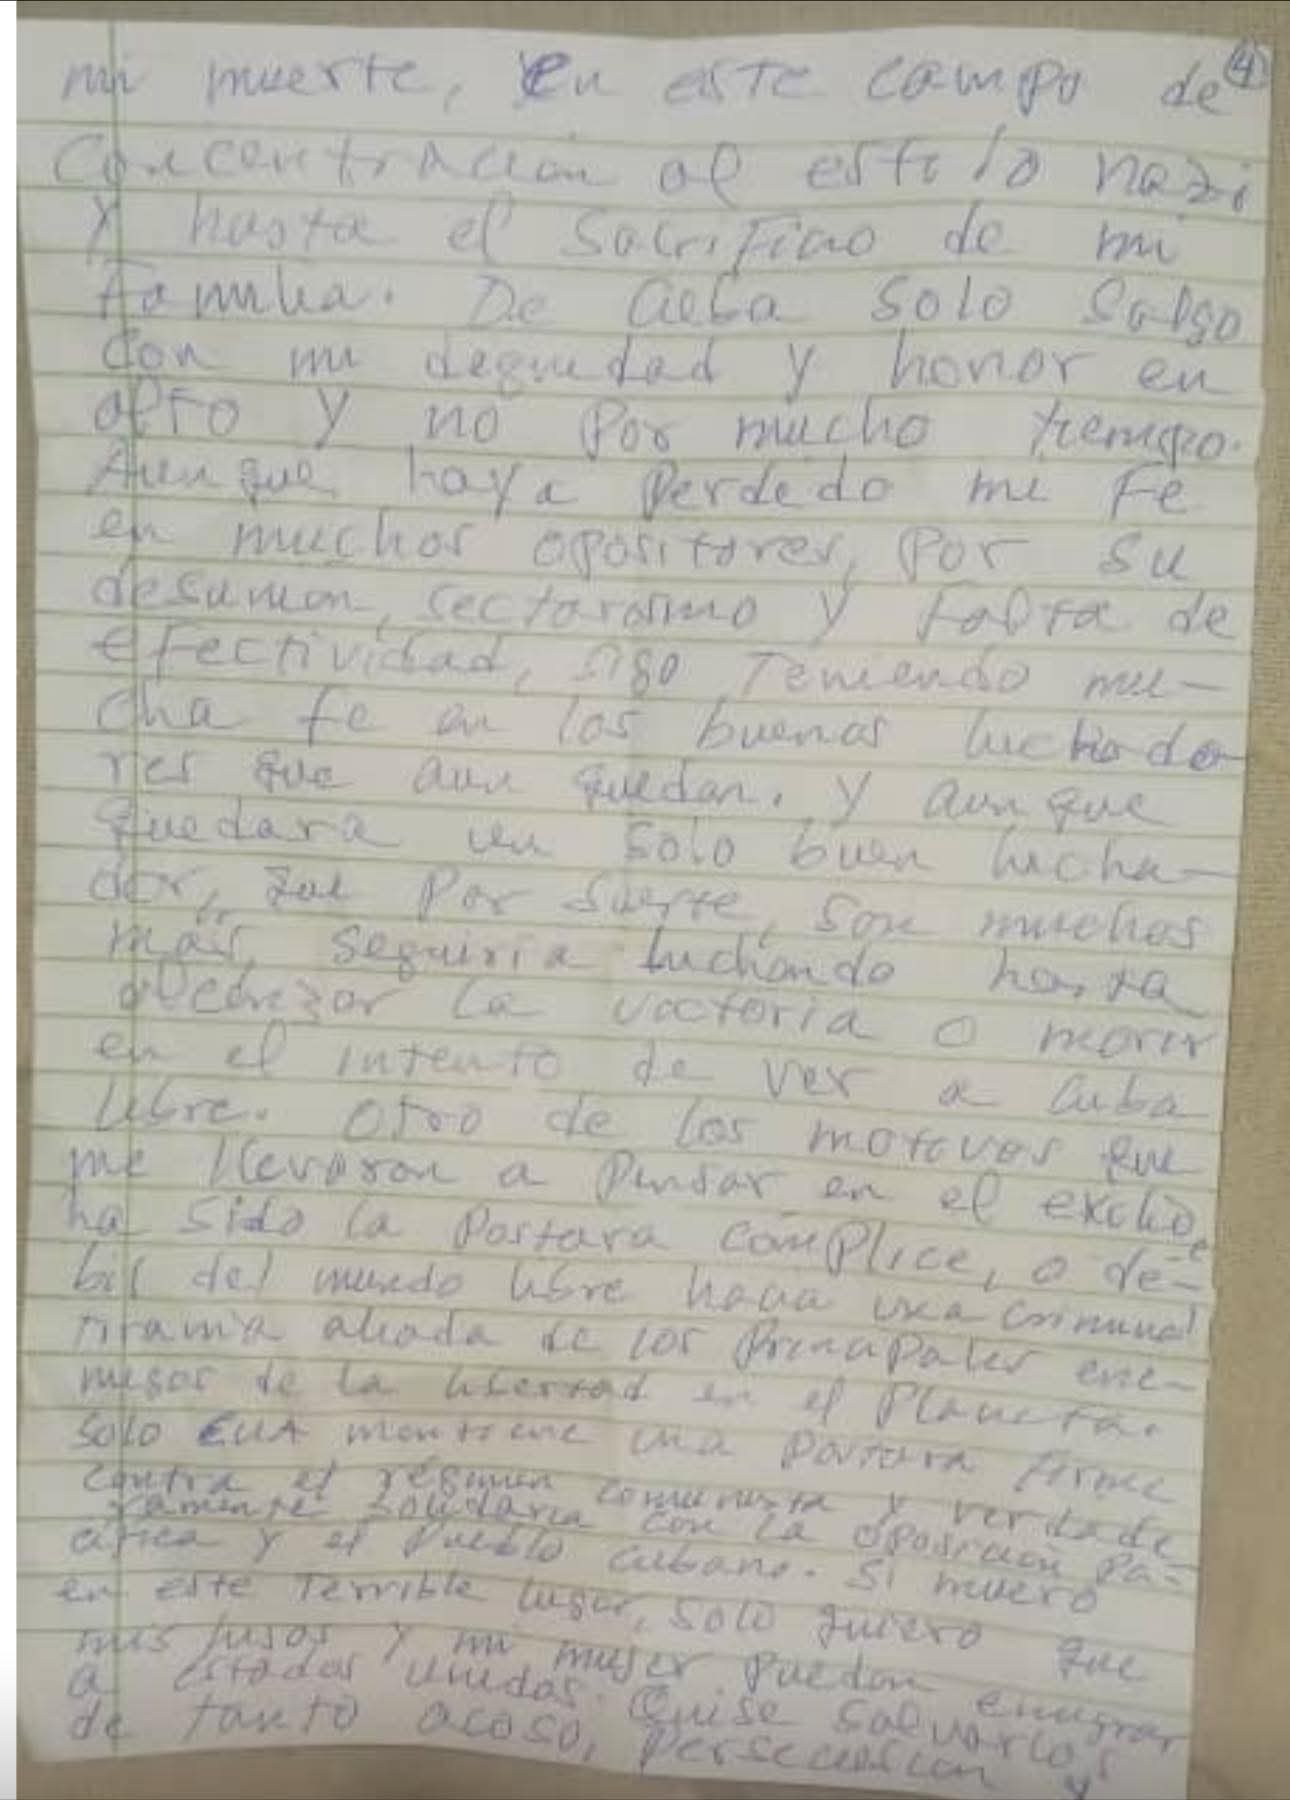 ④
mi muerte, en este campo de
concentración al estilo nazi
y hasta el sacrificio de mi
familia. De Cuba solo salgo
con mi dignidad y honor en
alto y no por mucho tiempo.
Aunque haya perdido mi fe
en muchos opositores, por su
desunion, sectarismo y falta de
efectividad, sigo teniendo mu-
cha fe en los buenos luchado-
res que aun quedan. y aunque
quedara un solo buen lucha-
dor, que por suerte, son muchos
más, seguiria luchando hasta
alcanzar la victoria o morir
en el intento de ver a Cuba
libre. Otro de los motivos que
me llevaron a pensar en el exilio,
ha sido la postura cómplice, o dé-
bil del mundo libre hacia una criminal
tirania aliada de los principales ene-
migos de la libertad en el Planeta.
Solo EUA mantiene una postura firme
contra el régimen comunista y verdade
ramente solidaria con la oposición pa-
cifica y el pueblo cubano. Si muero
en este terrible lugar, solo quiero que
mis hijos y mi mujer puedan emigrar
a Estados Unidos. Quise salvarlos
de tanto acoso, persecusion y